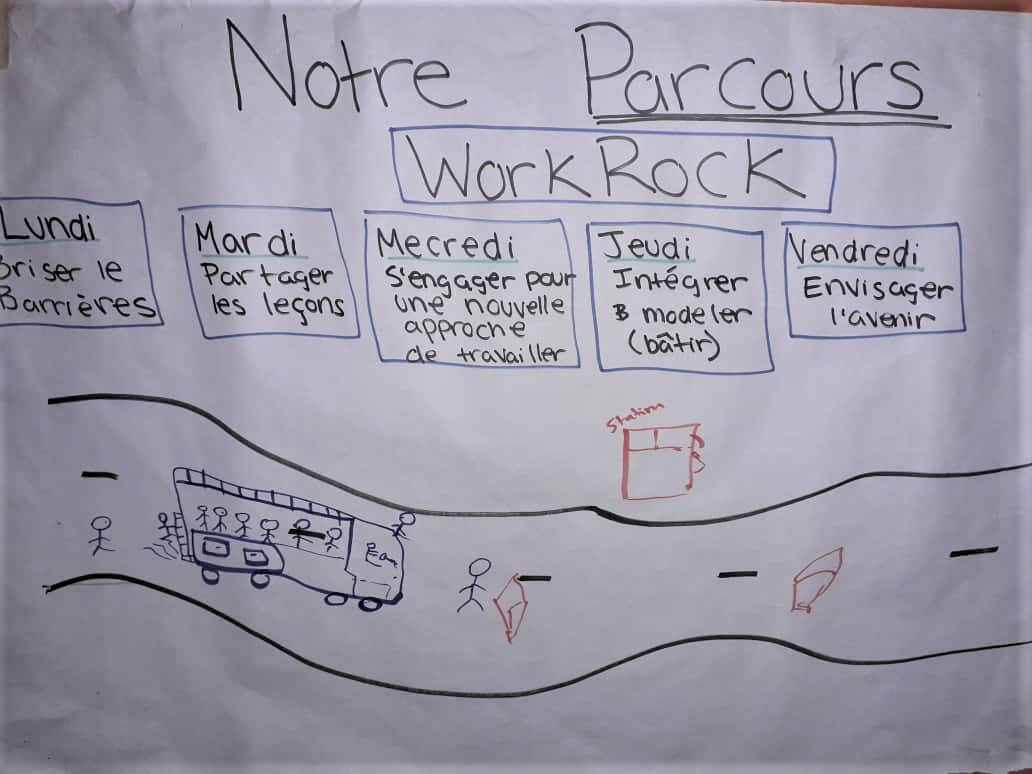 Notre Parcours
WORKROCK
Lundi
Briser le
Barrières
Mardi
Partager
les leçons
Mecredi
S'engager pour
une nouvelle
approche
de travailler
Jeudi
Intégrer
& modeler
(bâtir)
Vendredi
Envisager
l'avenir
Station